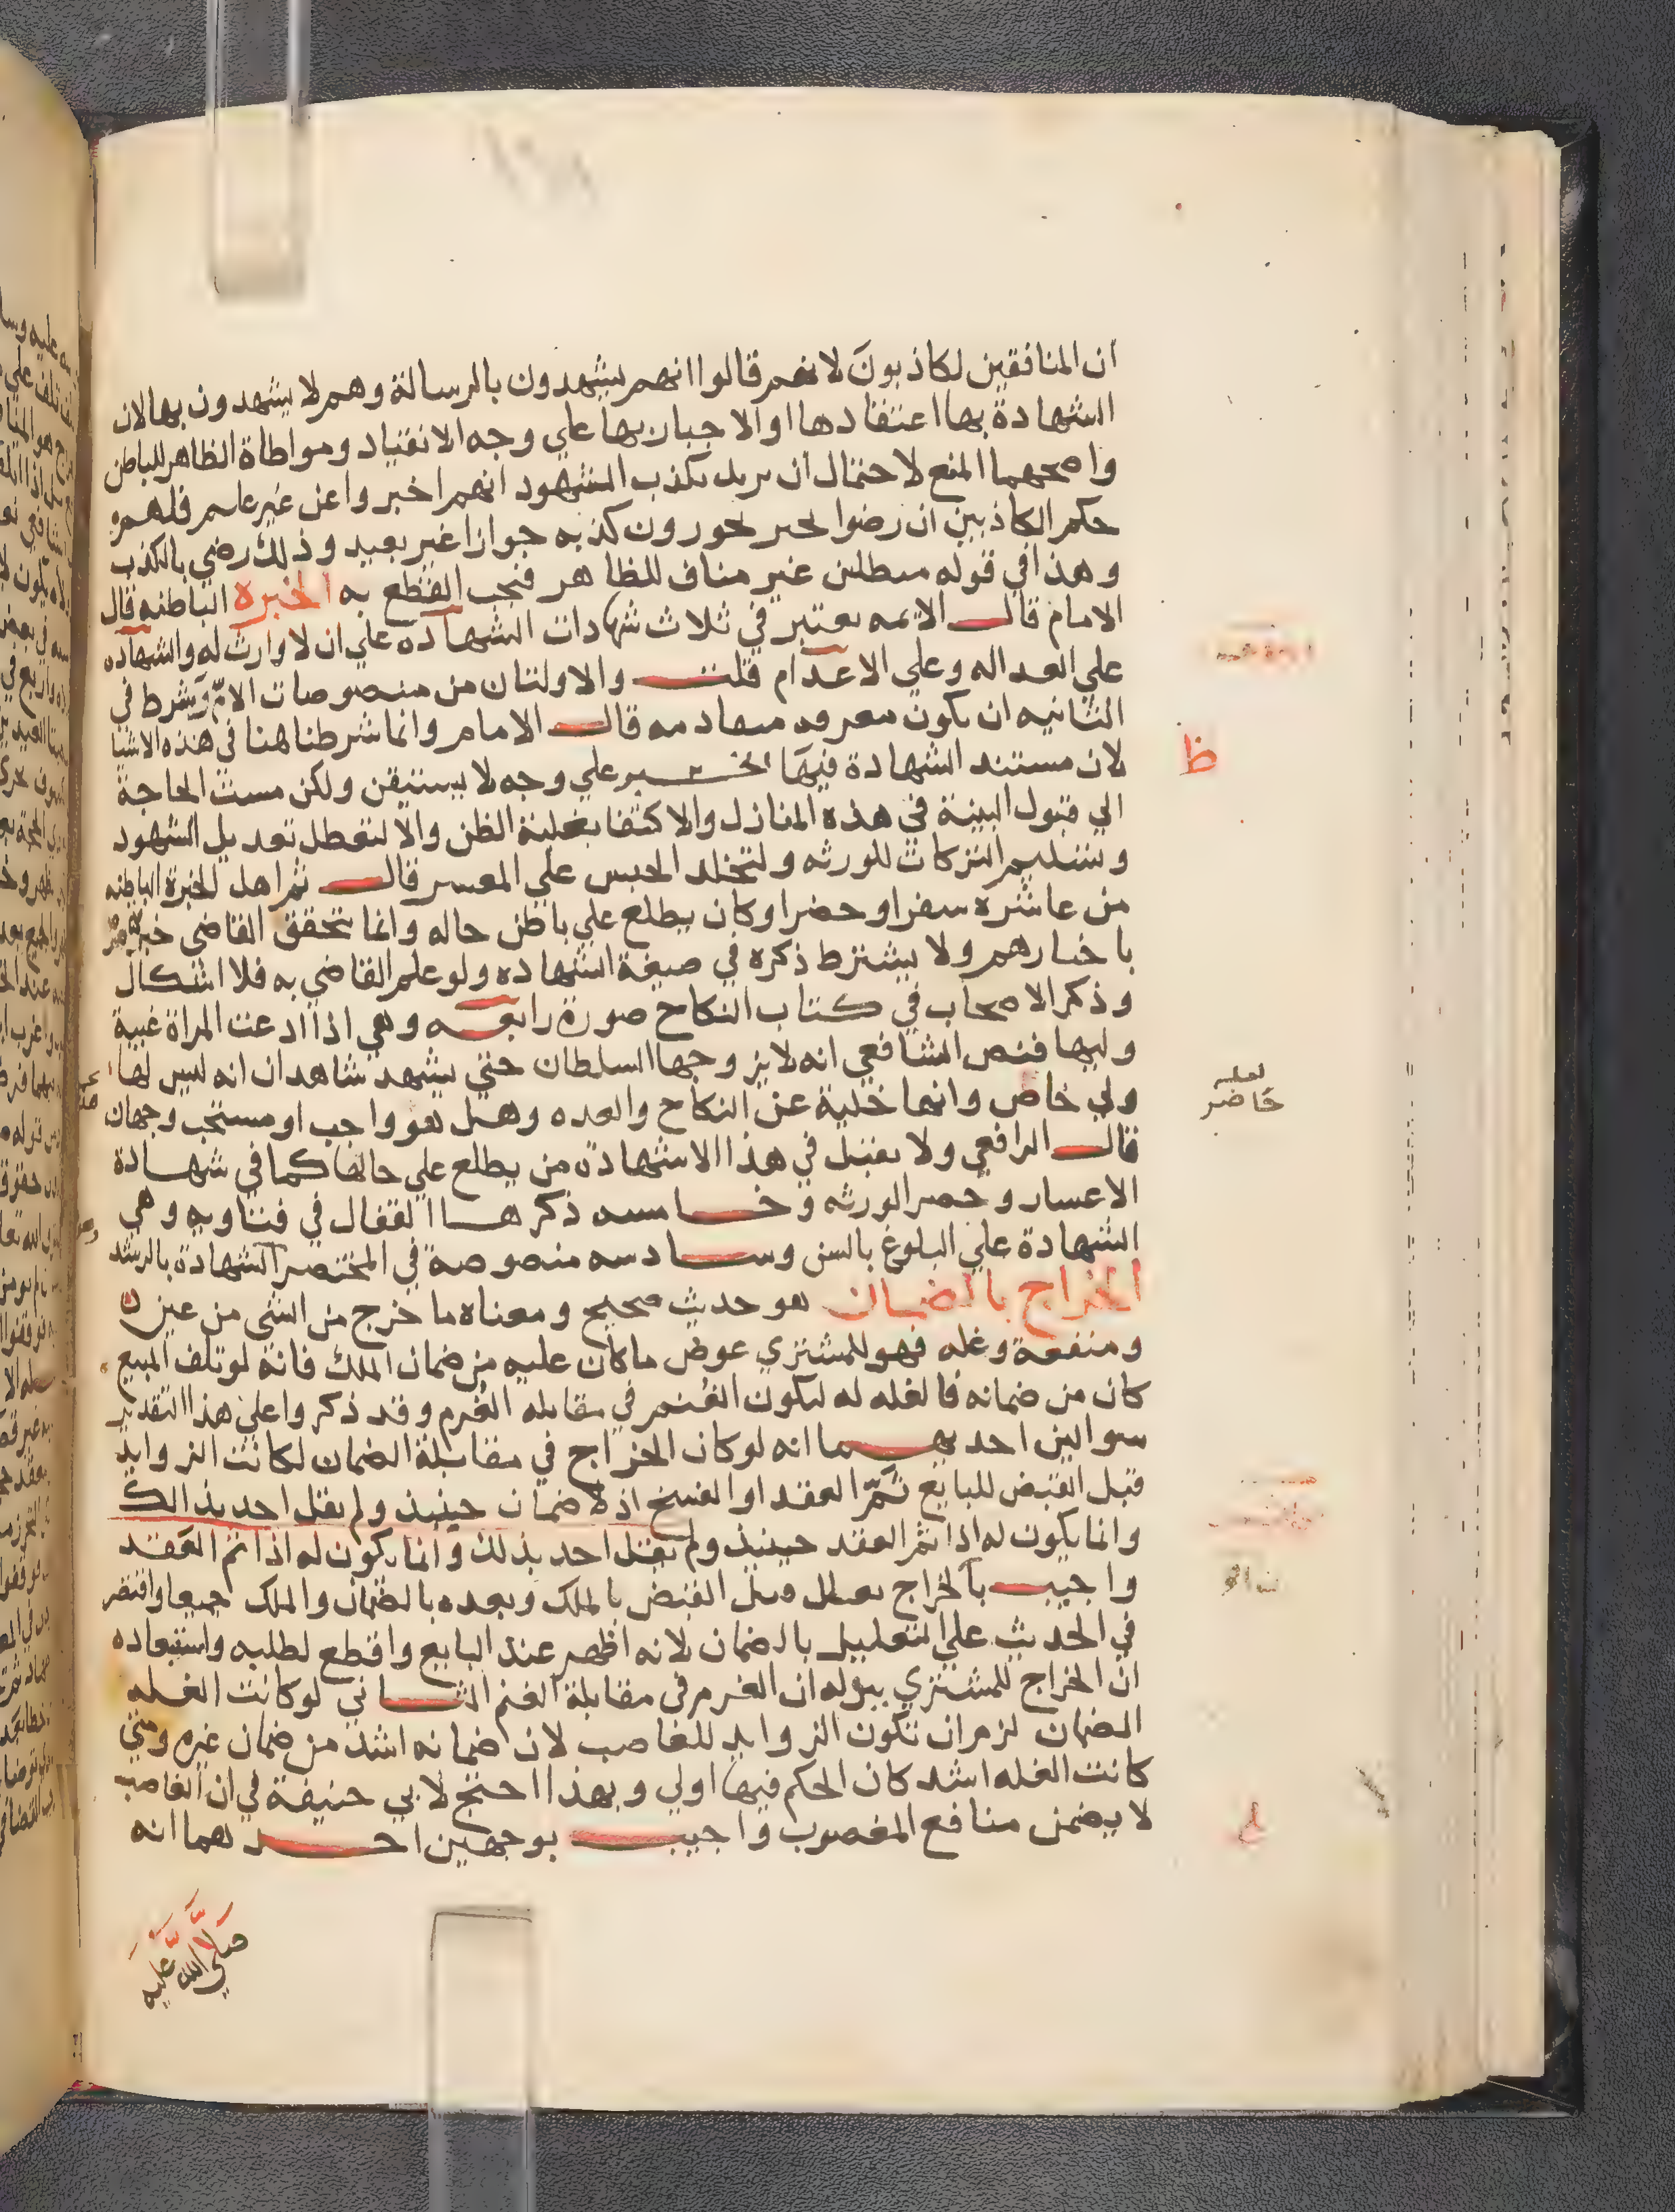 ان المنافقين لكاذبونَ لانهم قالوا انهم يشهدون بالرسالة وهم لا يشهدون بها لان
الشهادة بها اعتقادها او الاخبار بها علي وجه الانقياد ومواطاة الظاهر للباطن
واصحهما المنع لاحتمال ان يريد بكذب الشهود انهم اخبروا عن غير علم فلهم
حكم الكاذبين ان رضوا كذبه جوازا غير بعيد وذلك رضي بالكذب
وهذا في قوله مبطلين غير مناف للظاهر فيجب القطع به الخبرة الباطنه قال
الامام قال الايمه يعتبر في ثلاث شهادات الشهادة علي ان لا وارث له والشهاده
علي العداله وعلي الاعدام قلت والاولتان من منصوصات الامّ وشرط في
الثانيه ان يكون معرفه متقادمه قال الامام وانما شرطنا هنا في هذه الاشيا
لان مستند الشهادة فيها الخبر علي وجه لا يستيقن ولكن مست الحاجة
الي قبول البينة في هذه المنازل والاكتفا بغلبة الظن والا لتعطل تعديل الشهود
وتسليم التركات للورثه ولتخلد الحبس علي المعسر قال ثم اهل الخبرة الباطنه
من عاشره سفرا وحضرا وكان يطلع علي باطن حاله وانما يتحقق القاضي
باخبارهم ولا يشترط ذكره في صيغة الشهاده ولو علم القاضي به فلا اشكال
وذكر الاصحاب في كتاب النكاح صورة رابعه وهي اذا ادعت المراة غيبة
وليها فنص الشافعي انه لا يزوجها السلطان حتي يشهد شاهدان انه ليس لها
ولي خاص وانها خلية عن النكاح والعده وهل هو واجب او مستحب وجهان
قال الرافعي ولا يقبل في هذا الا شهادة من يطلع علي حالها كما في شهادة
الاعسار وحصر الورثه وخامسه ذكرها القفال في فتاويه وهي
الشهادة علي البلوغ بالسن وسادسه منصوصة في المختصر الشهادة بالرشد
الخراج بالضمان هو حديث صحيح ومعناه ما خرج من الشي من عين
ومنفعة وغله فهو للمشتري عوض ما كان عليه من ضمان الملك فانه لو تلف المبيع
كان من ضمانه فالغله له ليكون الغُنم في مقابله الغُرم وقد ذكروا علي هذا التقدير
سوالين احدهما انه لو كان الخراج في مقابلة الضمان لكانت الزوايد
قبل القبض للبايع تَمّ العقد او انفسخ اذ لا ضمان حينيذ ولم يقل احد بذالك
وانما يكون له اذا تم العقد حينيذ ولم يقل احد بذلك وانما يكون له اذا تم العقد
واجيب بالخراج يعلل قبل القبض بالملك وبعده بالضمان والملك جميعا واقتصر
في الحديث علي التعليل بالضمان لانه اظهر عند البايع واقطع لطلبه واستبعاده
ان الخراج للمشتري بقوله ان الغرم في مقابلة الغنم الثاني لو كانت الغله
الضمان لزم ان تكون الزوايد للغاصب لان ضمانه اشد من ضمان غيره ومتي
كانت الغله اشد كان الحكم فيها اولي وبهذا احتج لابي حنيفة في ان الغاصب
لا يضمن منافع المغصوب واجيب بوجهين احدهما انه
ظ
لعله
حاضر
صلي الله عليه